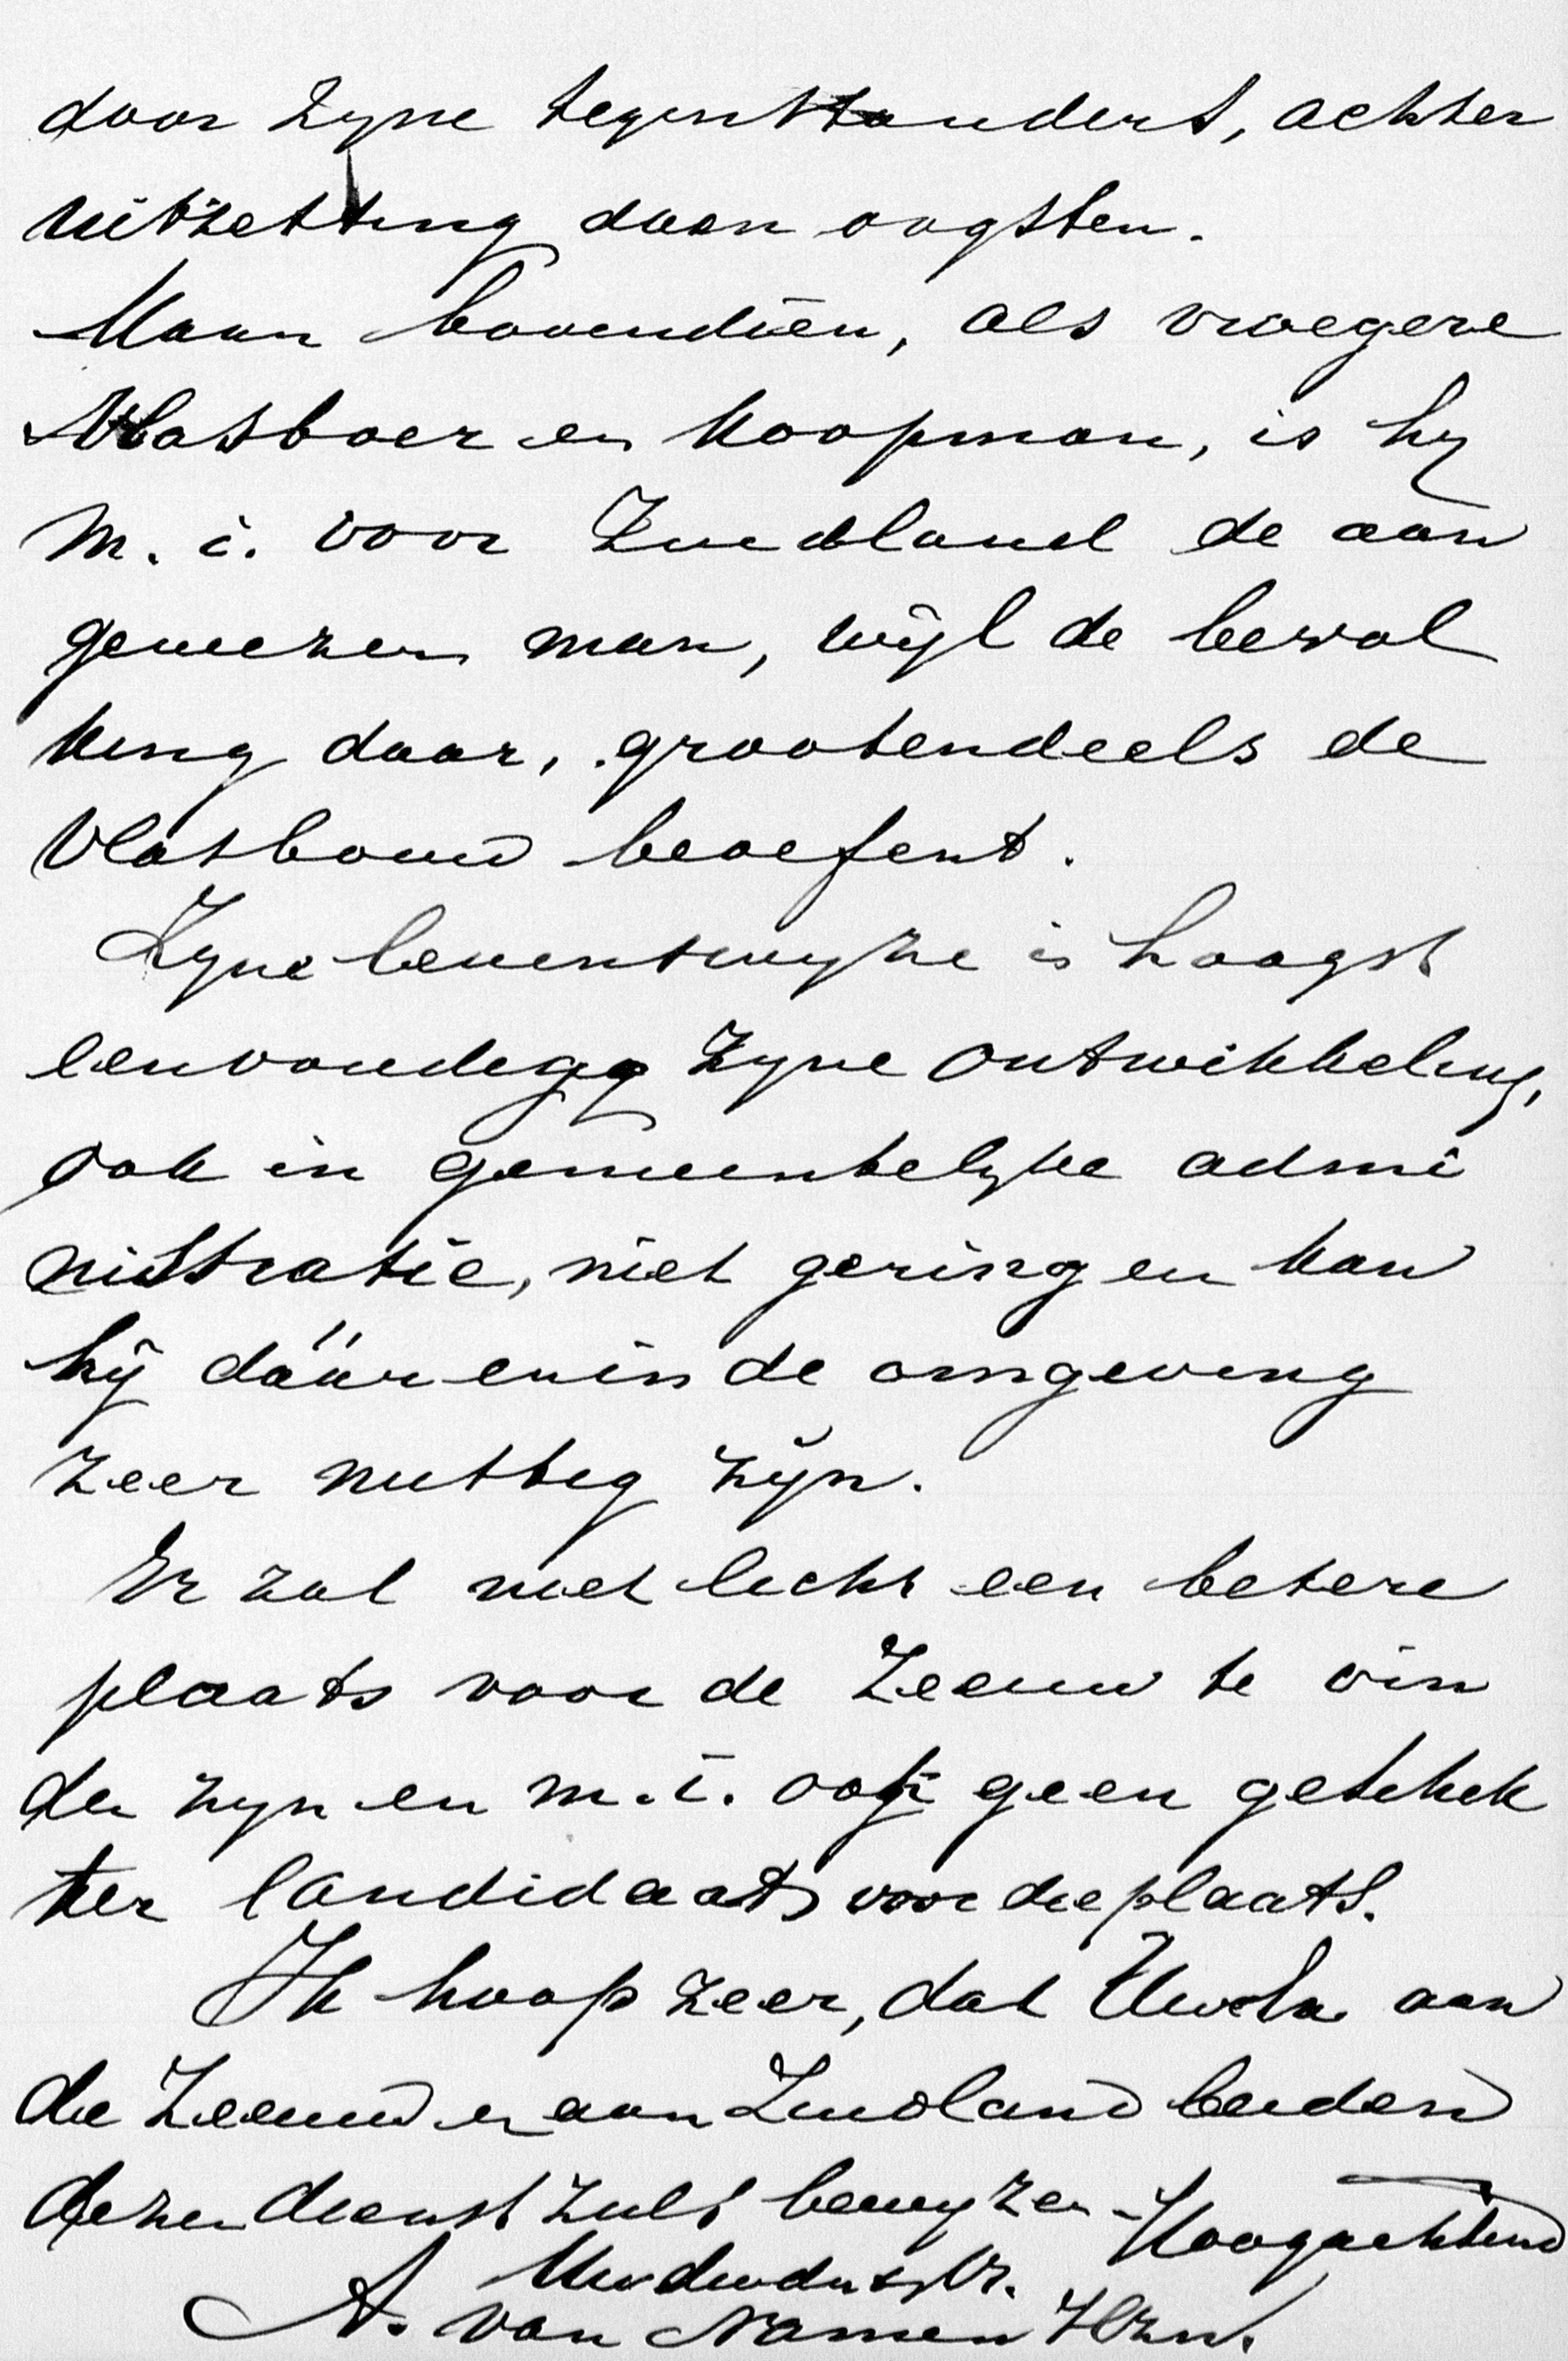 door zyne tegenstanders, achter
uitzetting doen oogsten.
Maar bovendien, als vroegere
Vlasboer en Koopman, is hy
m. i. voor Zuidland de aan
gewezen man, wijl de bevol
king daar, grootendeels de
Vlasbouw beoefent.
Zyne levenswyze is hoogst
eenvoudig zyne ontwikkeling,
ook in gemeentelyke admi
nistratie, niet gering en kan
hij dáár en in de omgeving
zeer nuttig zijn.
Er zal niet licht een betere
plaats voor de Zeeuw te vin
den zyn en m.i. ook geen geschik
ter Candidaat voor die plaats.
Ik hoop zeer, dat UwEd. aan
de Zeeuw en aan Zuidland beiden
dezen dienst zult bewyzen. Hoogachtend
Uw dw. dr.
A. van Namen Hzn.